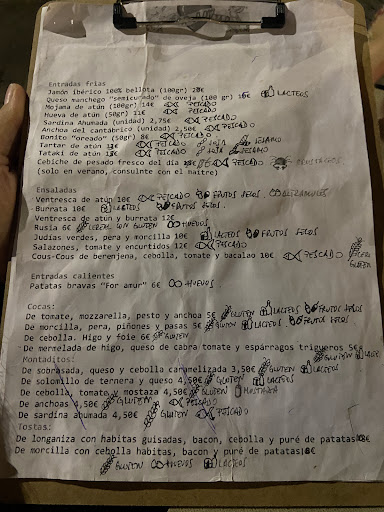 Entradas frias
Jamón ibérico 100% bellota (100gr) 20€
Queso manchego "semicurado" de oveja (100 gr) 16€ LACTEOS
Mojama de atún (100gr) 14€ PESCADO
Hueva de atún (50gr) 11€ PESCADO
Sardina Ahumada (unidad) 2,75€ PESCADO
Anchoa del cantábrico (unidad) 2,50€ PESCADO
Bonito "oreado" (50gr) 8€ PESCADO
Tartar de atún 15€ PESCADO SOJA SESAMO
Tataki de atún 15€ PESCADO SOJA SESAMO
Cebiche de pesado fresco del día PESCADO
(solo en verano, consulnte con el maitre)
Ensaladas
Ventresca de atún 10€ PESCADO FRUTOS SECOS
Burrata 10€ LACTEOS FRUTOS SECOS
Ventresca de atún y burrata 12€
Rusia 6€ CEREAL CON GLUTEN HUEVOS
Judías verdes, pera y morcilla 10€ LACTEOS FRUTOS SECOS
Salazones, tomate y encurtidos 12€ PESCADO
Cous-Cous de berenjena, cebolla, tomate y bacalao 10€ PESCADO GLUTEN
Entradas calientes
Patatas bravas "For amur" 6€ HUEVOS
Cocas:
De tomate, mozzarella, pesto y anchoa 5€ GLUTEN LACTEOS FRUTOS SECOS
De morcilla, pera, piñones y pasas 5€ GLUTEN LACTEOS FRUTOS SECOS
De cebolla. Higo y foie 6€ GLUTEN
De mermelada de higo, queso de cabra tomate y espárragos trigueros 5€ GLUTEN
Montaditos:
De sobrasada, queso y cebolla caramelizada 3,50€ GLUTEN LACTEOS
De solomillo de ternera y queso 4,50€ GLUTEN LACTEOS
De cebolla, tomate y mostaza 4,50€ GLUTEN MOSTAZA
De anchoas 4,50€ GLUTEN PESCADO
De sardina ahumada 4,50€ GLUTEN PESCADO
Tostas:
De longaniza con habitas guisadas, bacon, cebolla y puré de patatas 8€
De morcilla con cebolla habitas, bacon y puré de patatas 8€
GLUTEN HUEVOS LACTEOS